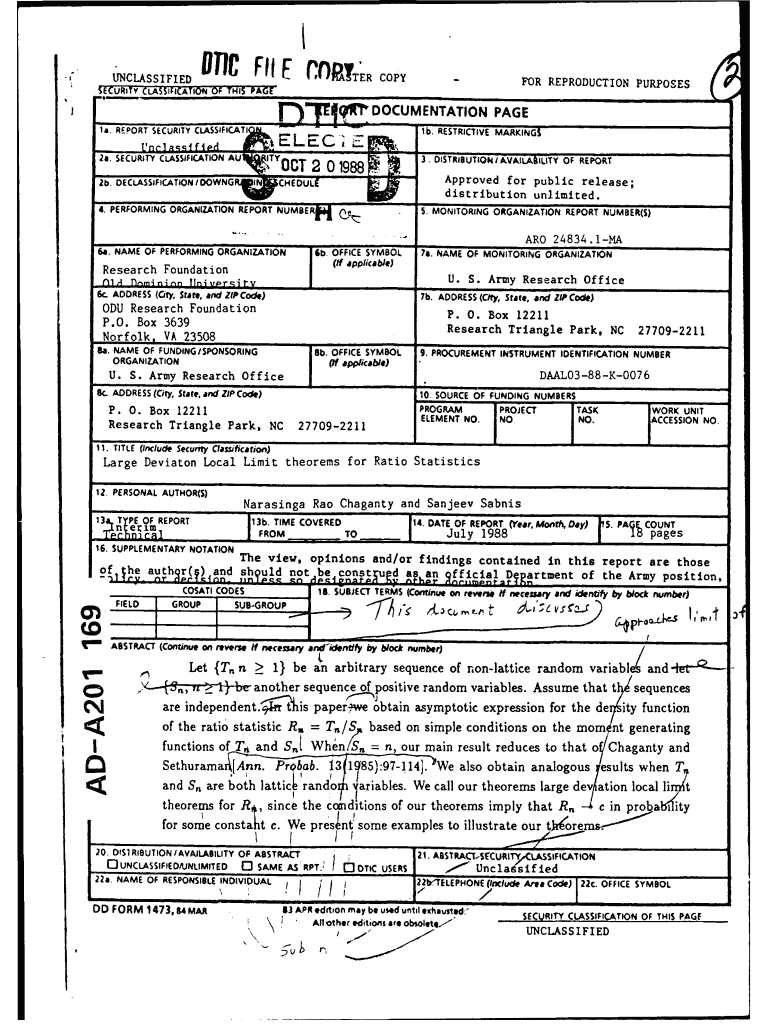 DTIC FILE COPY
UNCLASSIFIED MASTER COPY - FOR REPRODUCTION PURPOSES
2
SECURITY CLASSIFICATION OF THIS PAGE
REPORT DOCUMENTATION PAGE
DTIC
ELECTE
OCT 20 1988
S D
H
1a. REPORT SECURITY CLASSIFICATION
Unclassified
1b. RESTRICTIVE MARKINGS
2a. SECURITY CLASSIFICATION AUTHORITY
3. DISTRIBUTION/AVAILABILITY OF REPORT
Approved for public release;
distribution unlimited.
2b. DECLASSIFICATION/DOWNGRADING SCHEDULE
4. PERFORMING ORGANIZATION REPORT NUMBER(S)
5. MONITORING ORGANIZATION REPORT NUMBER(S)
ARO 24834.1-MA
6a. NAME OF PERFORMING ORGANIZATION
Research Foundation
Old Dominion University
6b. OFFICE SYMBOL
(If applicable)
7a. NAME OF MONITORING ORGANIZATION
U. S. Army Research Office
6c. ADDRESS (City, State, and ZIP Code)
ODU Research Foundation
P.O. Box 3639
Norfolk, VA 23508
7b. ADDRESS (City, State, and ZIP Code)
P. O. Box 12211
Research Triangle Park, NC 27709-2211
8a. NAME OF FUNDING/SPONSORING
ORGANIZATION
U. S. Army Research Office
8b. OFFICE SYMBOL
(If applicable)
9. PROCUREMENT INSTRUMENT IDENTIFICATION NUMBER
DAAL03-88-K-0076
8c. ADDRESS (City, State, and ZIP Code)
P. O. Box 12211
Research Triangle Park, NC 27709-2211
10. SOURCE OF FUNDING NUMBERS
PROGRAM
ELEMENT NO.
PROJECT
NO.
TASK
NO.
WORK UNIT
ACCESSION NO.
11. TITLE (Include Security Classification)
Large Deviaton Local Limit theorems for Ratio Statistics
12. PERSONAL AUTHOR(S)
Narasinga Rao Chaganty and Sanjeev Sabnis
13a. TYPE OF REPORT
Interim Technical
13b. TIME COVERED
FROM TO
14. DATE OF REPORT (Year, Month, Day)
July 1988
15. PAGE COUNT
18 pages
16. SUPPLEMENTARY NOTATION
The view, opinions and/or findings contained in this report are those
of the author(s) and should not be construed as an official Department of the Army position,
policy, or decision, unless so designated by other documentation.
COSATI CODES
FIELD GROUP SUB-GROUP
18. SUBJECT TERMS (Continue on reverse if necessary and identify by block number)
This document discusses
approaches limit of
ABSTRACT (Continue on reverse if necessary and identify by block number)
Let {Tₙ n ≥ 1} be an arbitrary sequence of non-lattice random variables and let
{Sₙ, n ≥ 1} be another sequence of positive random variables. Assume that the sequences
are independent. In this paper we obtain asymptotic expression for the density function
of the ratio statistic Rₙ = Tₙ/Sₙ based on simple conditions on the moment generating
functions of Tₙ and Sₙ. When Sₙ = n, our main result reduces to that of Chaganty and
Sethuraman[Ann. Probab. 13(1985):97-114]. We also obtain analogous results when Tₙ
and Sₙ are both lattice random variables. We call our theorems large deviation local limit
theorems for Rₙ, since the conditions of our theorems imply that Rₙ → c in probability
for some constant c. We present some examples to illustrate our theorems.
AD-A201 169
20. DISTRIBUTION/AVAILABILITY OF ABSTRACT
☐ UNCLASSIFIED/UNLIMITED ☐ SAME AS RPT. ☐ DTIC USERS
21. ABSTRACT SECURITY CLASSIFICATION
Unclassified
22a. NAME OF RESPONSIBLE INDIVIDUAL
22b. TELEPHONE (Include Area Code)
22c. OFFICE SYMBOL
DD FORM 1473, 84 MAR
83 APR edition may be used until exhausted.
All other editions are obsolete.
SECURITY CLASSIFICATION OF THIS PAGE
UNCLASSIFIED
sub n